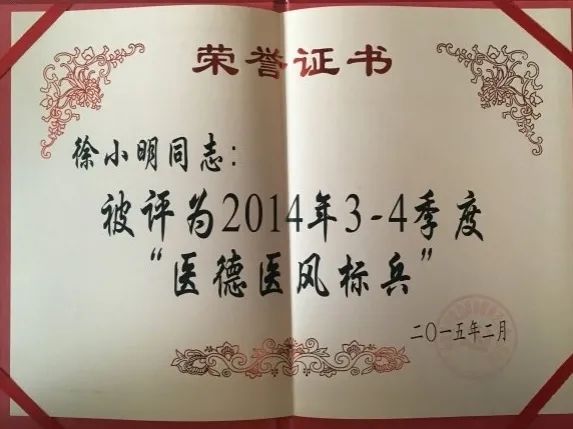 荣誉证书
徐小明同志：
被评为2014年3-4季度
“医德医风标兵”
二〇一五年二月